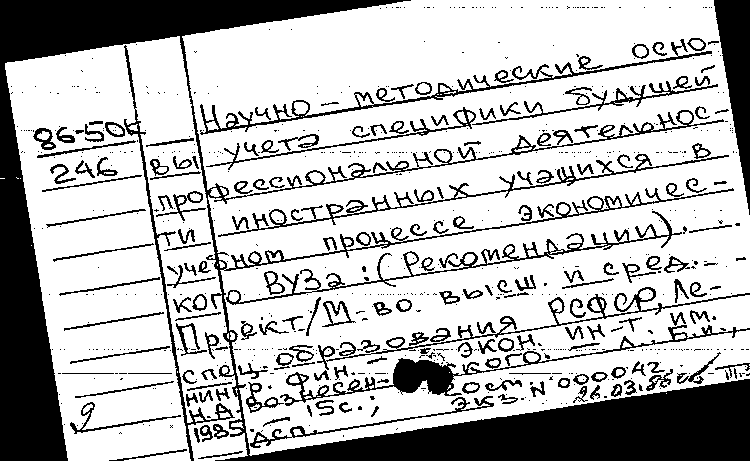 Научно-методические осно-
86-50к
246
вы учета специфики будущей
профессиональной деятельнос-
ти иностранных учащихся в
учебном процессе экономичес-
кого ВУЗа: (Рекомендации). . .
Проект/М-во высш. и сред. -
спец. образования РСФСР, Ле-
нингр. фин.-экон. ин-т им.
Н.А.Вознесенского. - Л.: Б.и.,
1985. - 15 с.;
дсп. экз. N 000042
26.03.86
9